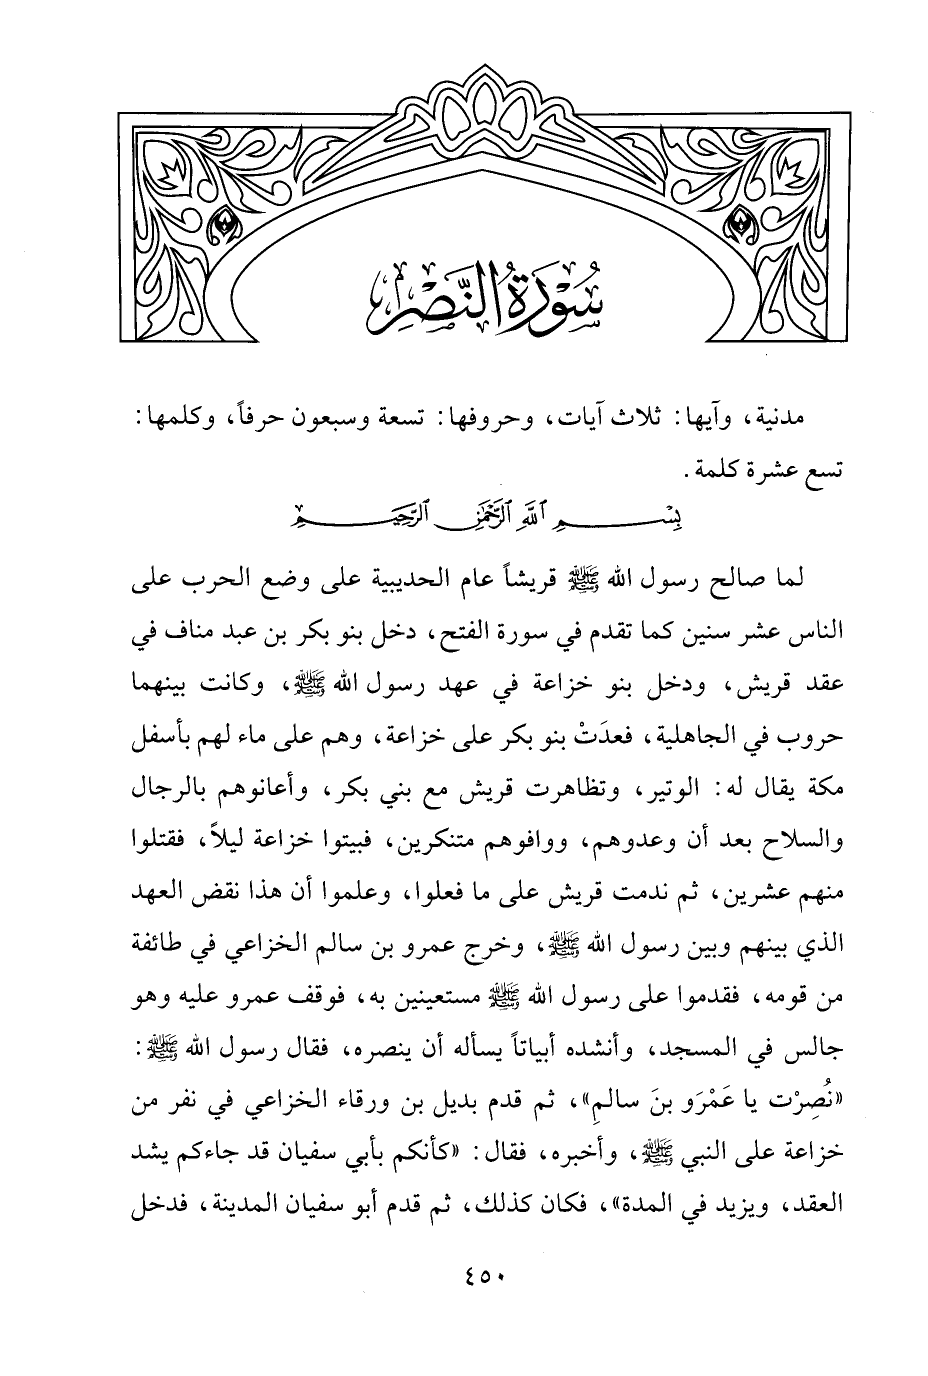 سُوْرَةُ النَّصْرِ
مدنية، وآيها: ثلاث آيات، وحروفها: تسعة وسبعون حرفاً، وكلمها:
تسع عشرة كلمة.
بِسْمِ ٱللَّهِ ٱلرَّحْمَٰنِ ٱلرَّحِيمِ
لما صالح رسول الله ﷺ قريشاً عام الحديبية على وضع الحرب على
الناس عشر سنين كما تقدم في سورة الفتح، دخل بنو بكر بن عبد مناف في
عقد قريش، ودخل بنو خزاعة في عهد رسول الله ﷺ، وكانت بينهما
حروب في الجاهلية، فعدَتْ بنو بكر على خزاعة، وهم على ماء لهم بأسفل
مكة يقال له: الوتير، وتظاهرت قريش مع بني بكر، وأعانوهم بالرجال
والسلاح بعد أن وعدوهم، ووافوهم متنكرين، فبيتوا خزاعة ليلاً، فقتلوا
منهم عشرين، ثم ندمت قريش على ما فعلوا، وعلموا أن هذا نقض العهد
الذي بينهم وبين رسول الله ﷺ، وخرج عمرو بن سالم الخزاعي في طائفة
من قومه، فقدموا على رسول الله ﷺ مستعينين به، فوقف عمرو عليه وهو
جالس في المسجد، وأنشده أبياتاً يسأله أن ينصره، فقال رسول الله ﷺ:
«نُصِرْت يا عَمْرَو بنَ سالمِ»، ثم قدم بديل بن ورقاء الخزاعي في نفر من
خزاعة على النبي ﷺ، وأخبره، فقال: «كأنكم بأبي سفيان قد جاءكم يشد
العقد، ويزيد في المدة»، فكان كذلك، ثم قدم أبو سفيان المدينة، فدخل
٤٥٠